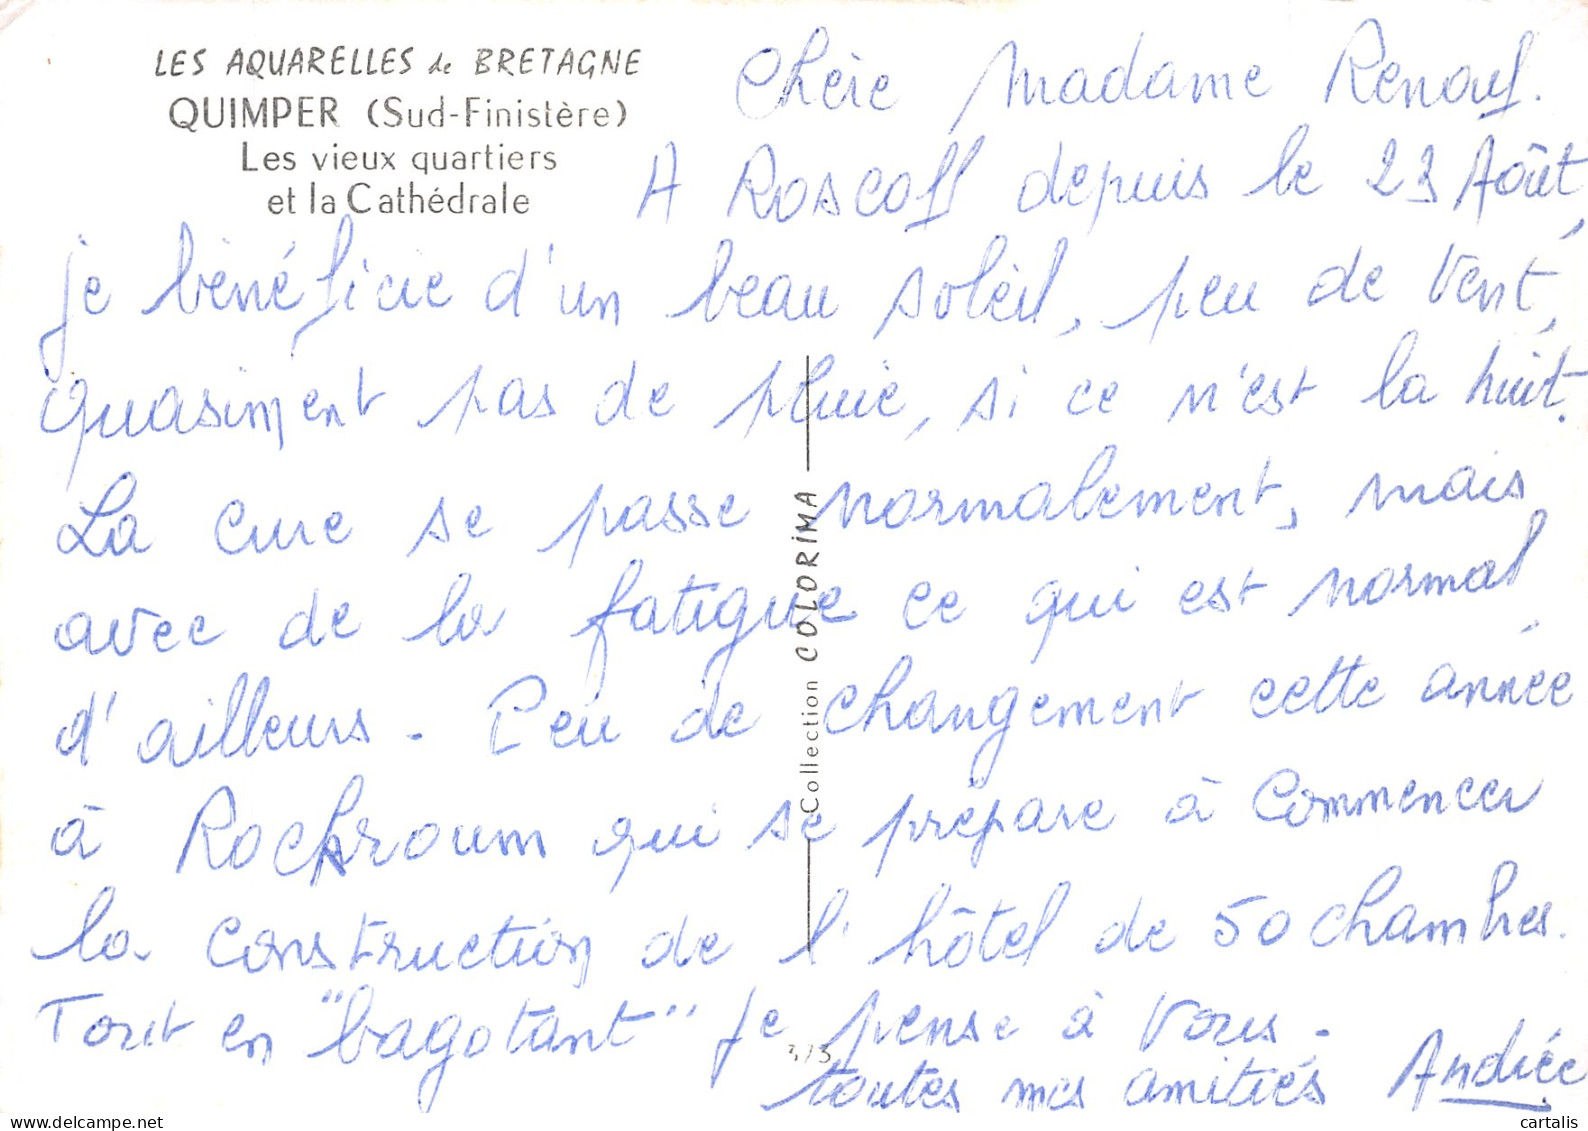 LES AQUARELLES de BRETAGNE
QUIMPER (Sud-Finistère)
Les vieux quartiers
et la Cathédrale
Chère Madame Renouf.
A Roscoff depuis le 23 Août,
je bénéficie d'un beau soleil, peu de vent,
quasiment pas de pluie, si ce n'est la nuit.
La cure se passe normalement, mais
avec de la fatigue ce qui est normal
d'ailleurs. Peu de changement cette année
à Rochroum qui se prépare à commencer
la construction de l'hôtel de 50 chambres.
Tout en "bagotant" je pense à vous.
toutes mes amitiés Andrée
Collection COLORIMA
3/3
© delcampe.net
cartalis